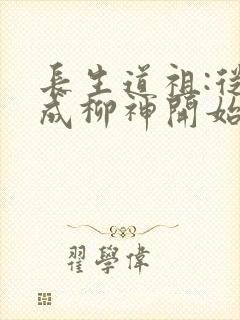 長生道祖:從
成柳神開始
翟學偉